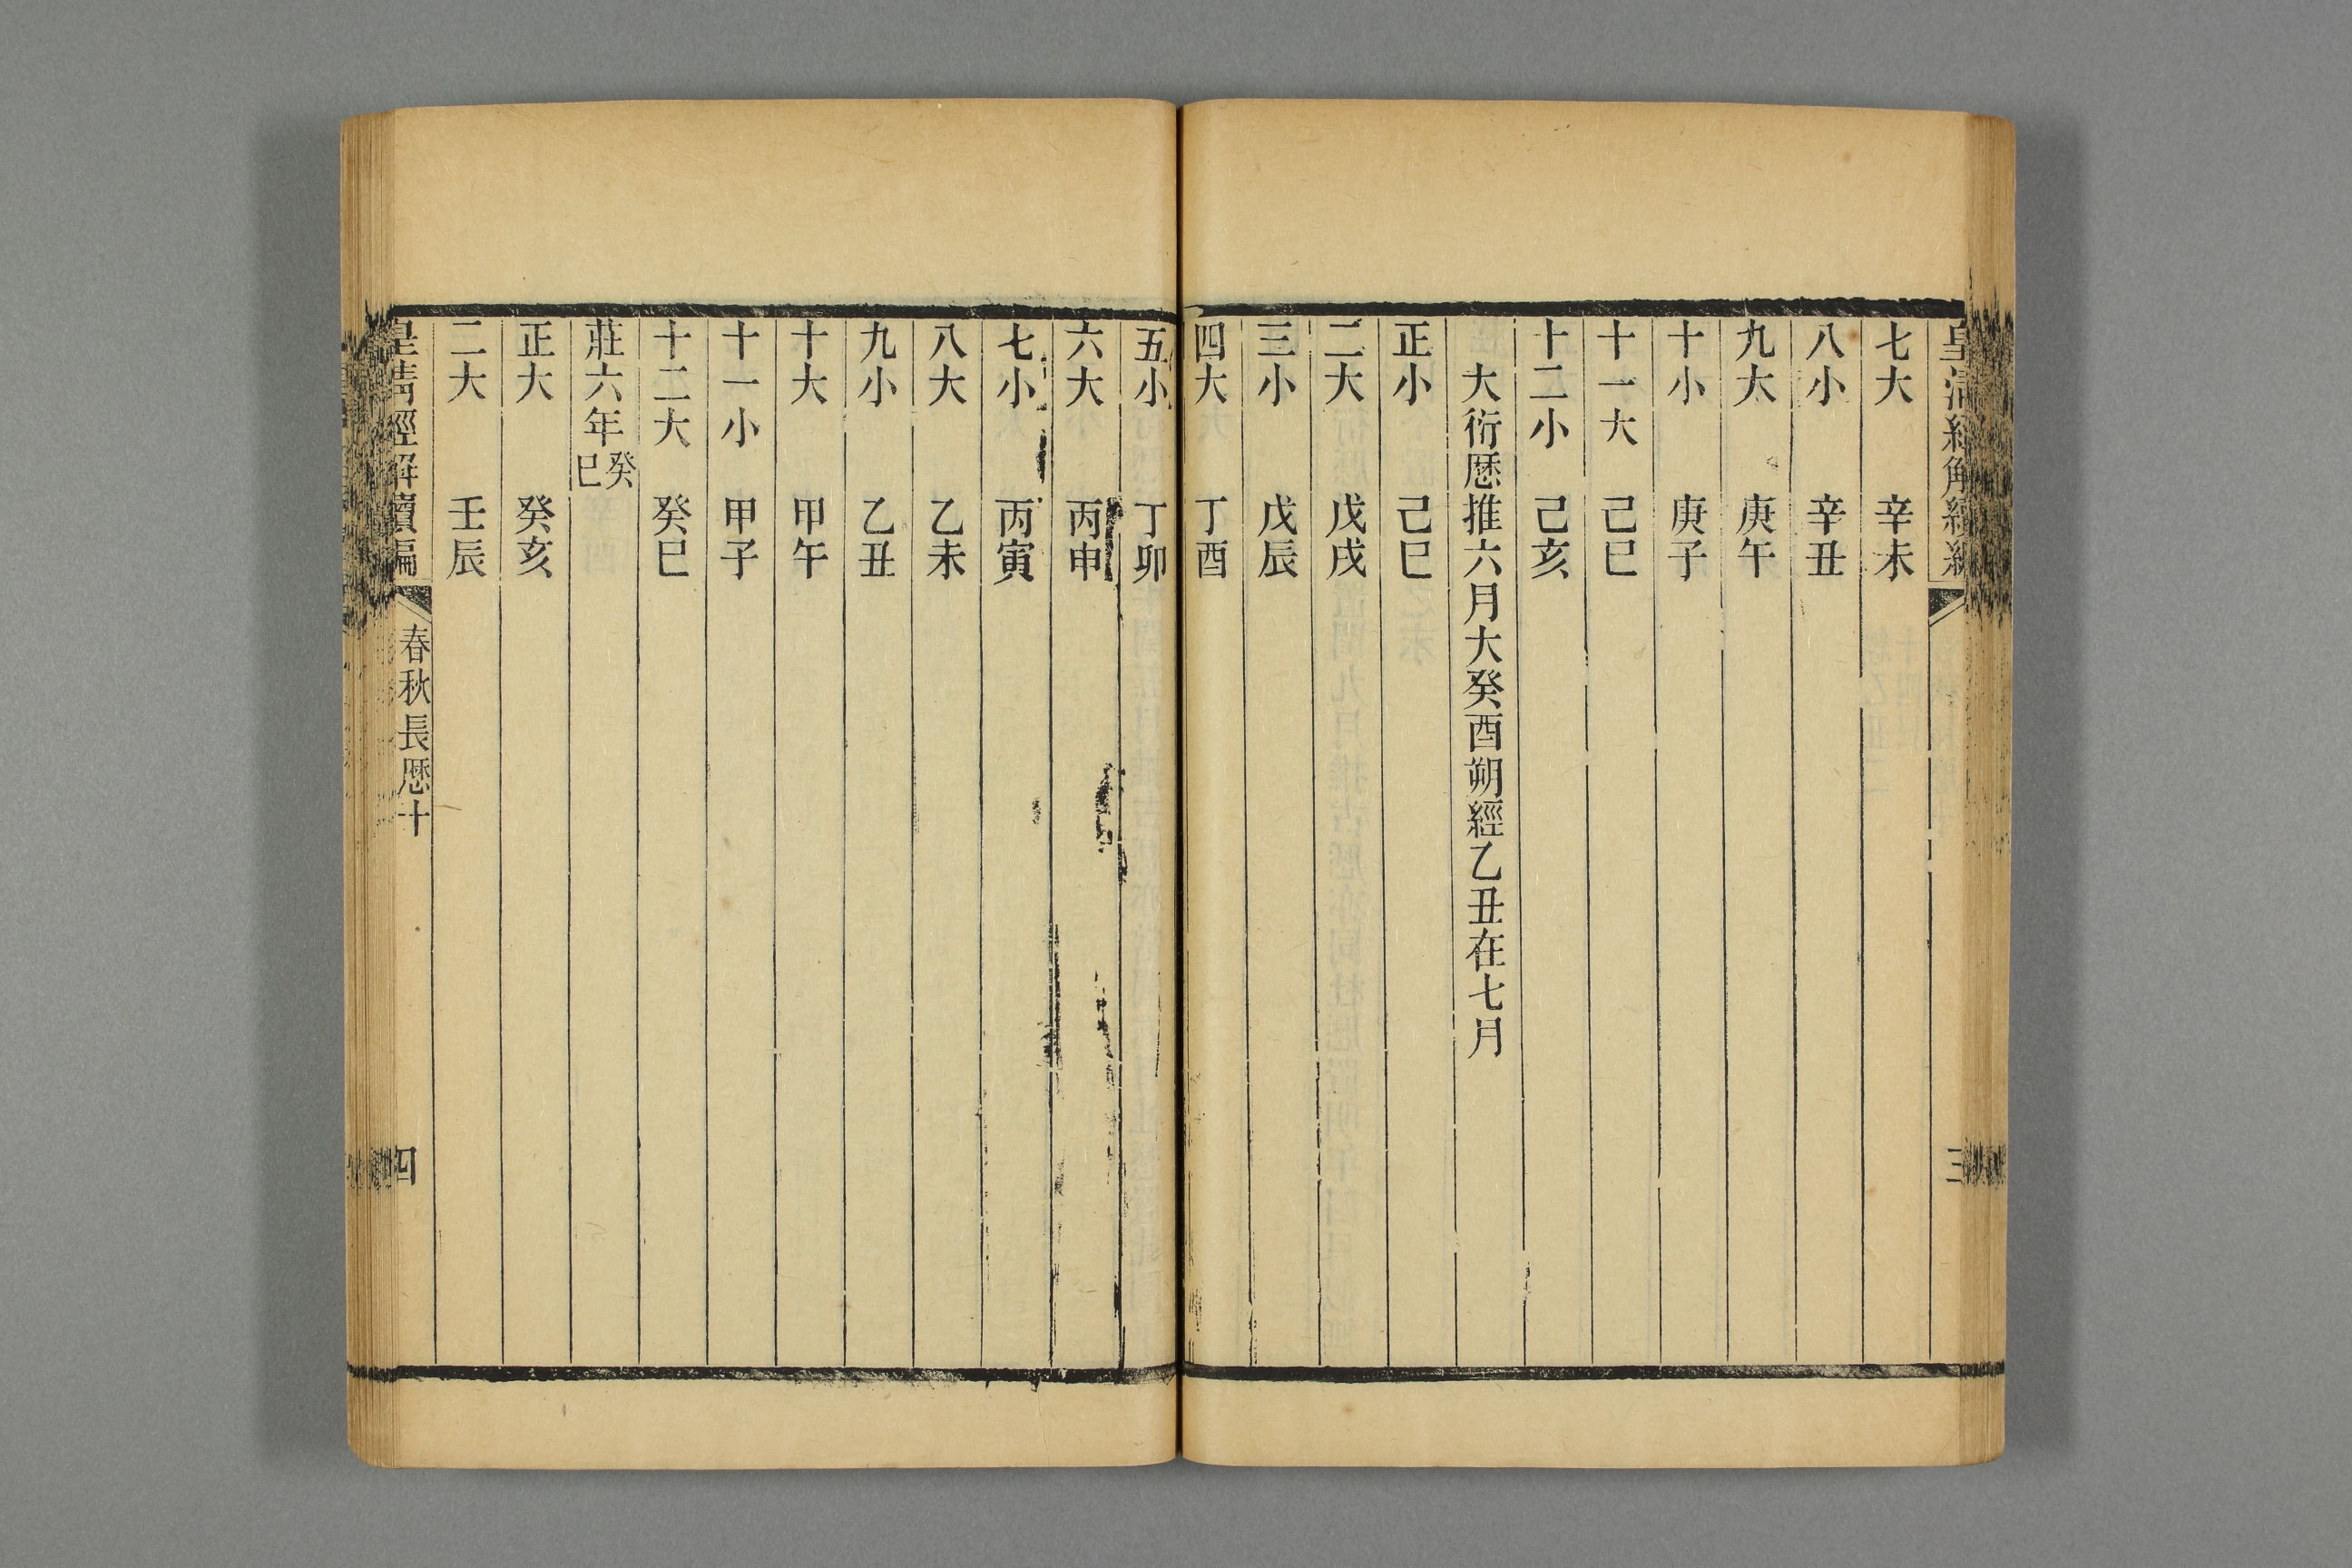 七大 辛未
八小 辛丑
九大 庚午
十小 庚子
十一大 己巳
十二小 己亥
大衍厯推六月大癸酉朔經乙丑在七月
正小 己巳
二大 戊戌
三小 戊辰
四大 丁酉
三
五小 丁卯
六大 丙申
七小 丙寅
八大 乙未
九小 乙丑
十大 甲午
十一小 甲子
十二大 癸巳
莊六年癸巳
正大 癸亥
二大 壬辰
皇淸經解續編 春秋長厯十 四